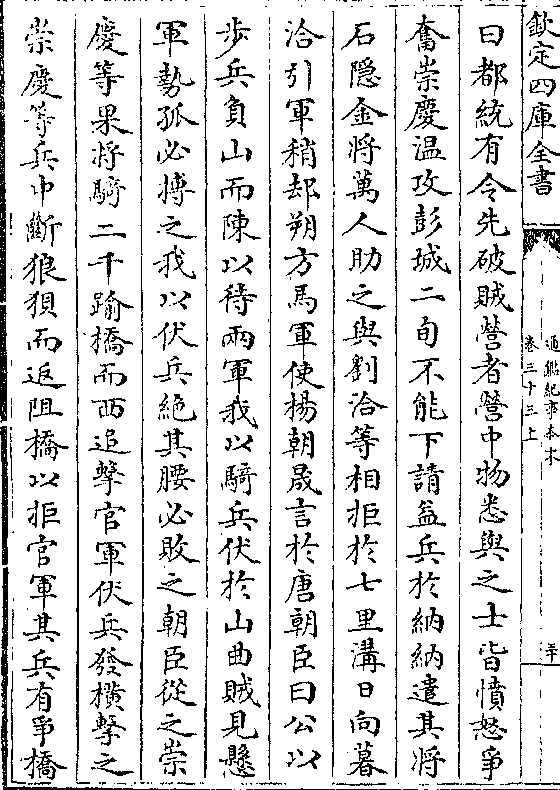 欽定四庫全書
通鑑紀事本末
卷三十三上
曰都統有令先破賊營者營中物悉與之士皆憤怒爭
奮崇慶温攻彭城二旬不能下請益兵於納納遣其將
石隱金將萬人助之與劉洽等相拒於七里溝日向暮
洽引軍稍却朔方馬軍使楊朝晟言於唐朝臣曰公以
步兵負山而陳以待兩軍我以騎兵伏於山曲賊見懸
軍勢孤必搏之我以伏兵絕其腰必敗之朝臣從之崇
慶等果將騎二千踰橋而西追擊官軍伏兵發橫擊之
崇慶等兵中斷狼狽而返阻橋以拒官軍其兵有爭橋